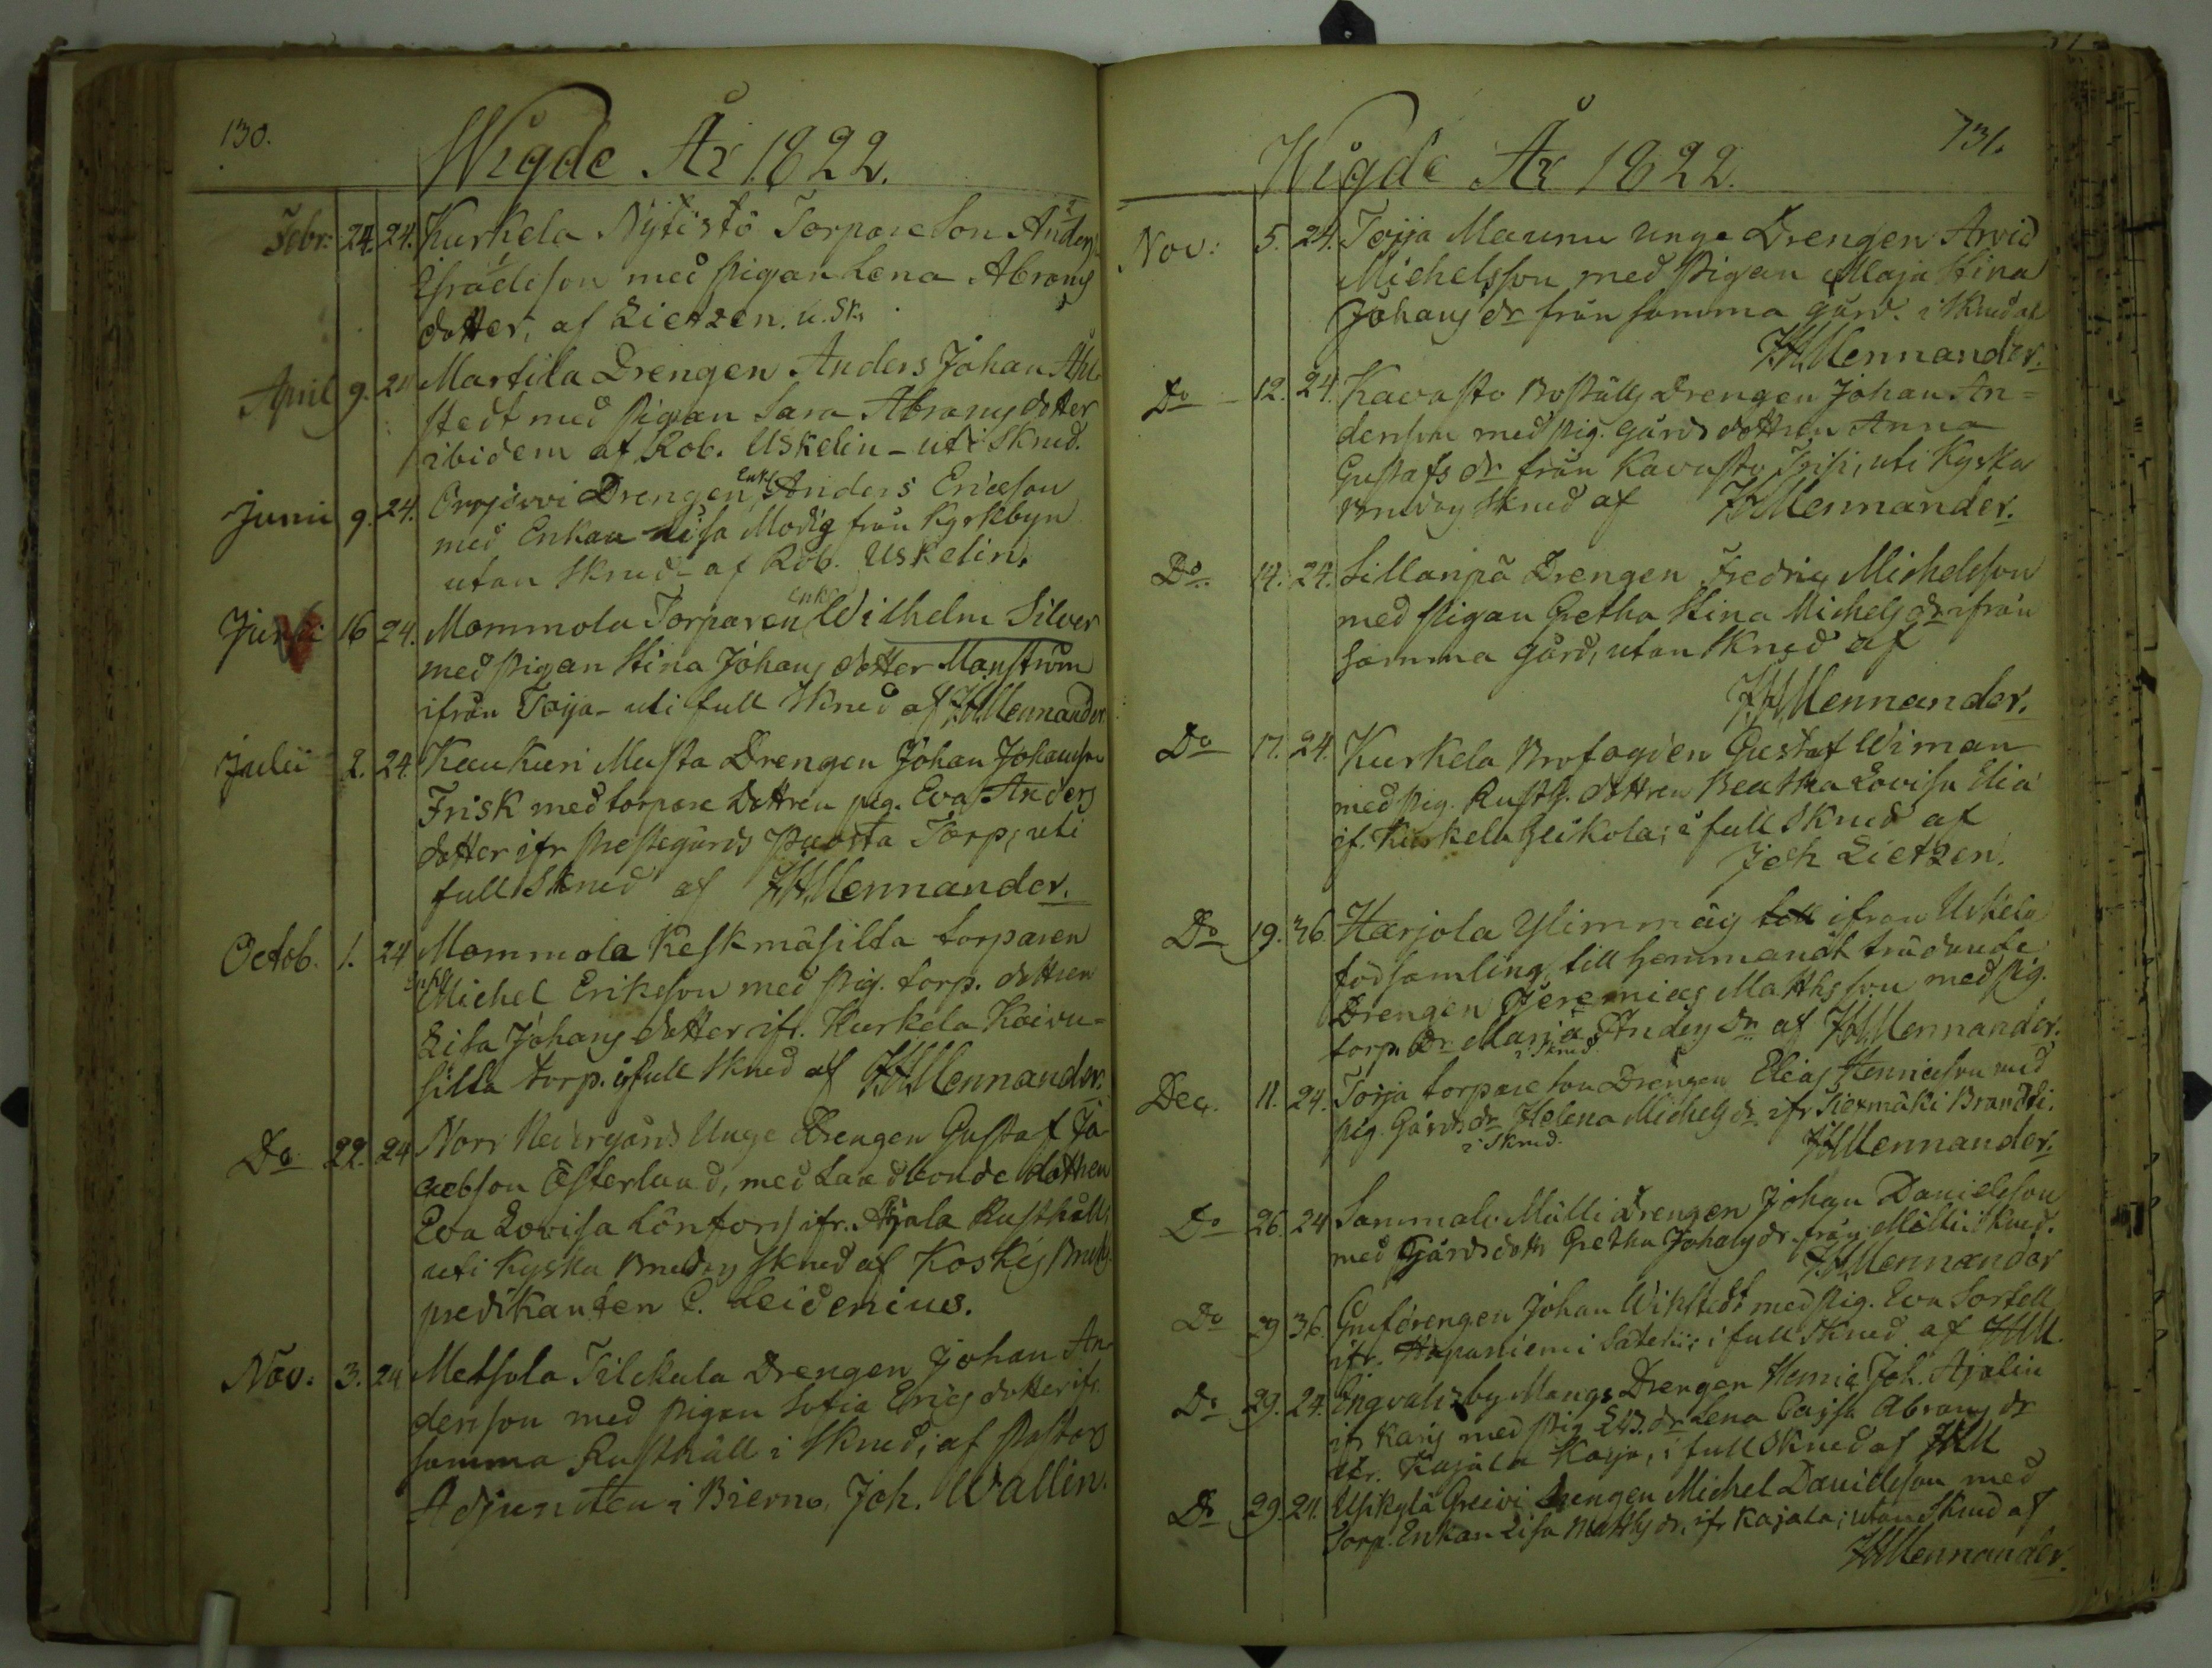 130.
Wigde År 1822.
Febr: 24. 24. Kurkela Nytistö Torpare Son Anders
Esraelsson med Pigan Lena Abrams
dotter, af Lietzen. u. Sk.
April 9. 24 Martila Drengen Anders Johan Ahl-
stedt med Pigan Sara Abrams dotter
ibidem af Rob. Uskelin - uti Skrud.
Junii 9. 24. Orrjärvi Drengen Enkl. Anders Ericsson
med Enkan Lisa Modig från Kyrkbyn
utan Skrud - af Rob. Uskelin.
Junii 16 24. Mommola Torparen Enkl. Wilhelm Silver
med Pigan Stina Johans dotter Manström
ifrån Toija - uti full Skrud af JHMennander.
Julii 2. 24. Kaukuri Musta Drengen Johan Johansson
Frisk med torpare Dottren pig. Eva Anders
dotter ifr Prestegårds Puosta Torp; uti
full Skrud af JHMennander.
Octob. 1. 24 Mommola Keskmäsilta torparen
Enkl. Michel Eriksson med Pig. torp. dottren
Lisa Johans dotter ifr. Kurkela Koivu-
silta torp. i full Skrud af JHMennander.
Do 22. 24 Norr Nedergårds Unge Drengen Gustaf Ja-
cobsson Österland, med Landbonde dottren
Eva Lovisa Lönfors ifr. Ajala Rusthåll;
uti Kyska Brudars Skrud af Koskis Bruks
predikanten C. Leidenius.
Nov: 3. 24 Metsola Tilckala Drengen Johan An-
dersson med Pigan Sofia Erics dotter ifr.
samma Rusthåll i Skrud; af Pastors
Adjuncten i Bierno, Joh. Wallin.
131.
Wigde År 1822.
Nov: 5. 24. Toija Maunu Unge Drengen Arvid
Michelsson med Pigan Maja Stina
Johans dr från samma gård. i Skrud af
JHMennander.
Do 12. 24. Kavasto Boställs Drengen Johan An=
dersson med pig. Gårds dottren Anna
Gustafs dr från Kavasto Prisi, uti Kyska
Brudars Skrud af JHMennander.
Do 14. 24. Sillanpä Drengen Fredric Michelsson
med Pigan Gretha Stina Michels dr ifrån
samma gård, utan Skrud af
JHMennander.
Do 17. 24. Kurkela Brofogden Gustaf Wiman
med Pig. Rusth. dottren Beatha Lovisa Elia
if. Kurkela Ylikola; i full Skrud af
Joh Lietzen.
Do 19. 36. Harjola Ylimmäs ifrån Uskela
Församling till hemmanet trädande
Drengen Jeremias Mathsson med Pig.
torp. Dr Maria Anders dr af JHMennander.
i Skrud
Dec. 11. 24. Toija torpare son Drengen Elias Henricsson med
pig. Gårds dr Helena Michels dr ifr Kiexmäki Brandti.
i Skrud. JHMennander.
Do 26. 24 Sammalo Mälli Drengen Johan Danielsson
med Gårds dottr Gretha Johans dr. från Mälli i Skrud.
JHMennander
Do 29 36. Grufdrengen Johan Wikstedt med Pig. Eva Sortell
ifr. Haapaniemi Säteri; i full Skrud af JHM.
Do 29. 24. Ingvalsby Mangs Drengen Henric Joh. Ajalin
ifr Karis med Pig LB. dr Lena Cajsa Abrams dr
ifr. Kajala Kaija, i full Skrud af JHM
Do 29. 24. Uskylä Greivi Drengen Michel Danielsson med
Torp. Enkan Lisa Maths dr, ifr Kajala; utan Skrud af
JHMennander.